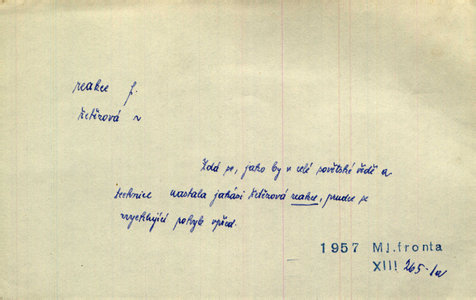 reakce f.
řetězová ~
Zdá se, jako by v celé sovětské vědě a
technice nastala jakási řetězová reakce, prudce se
zrychlující pohyb vpřed.
1957 Ml.fronta
XIII 265-1a